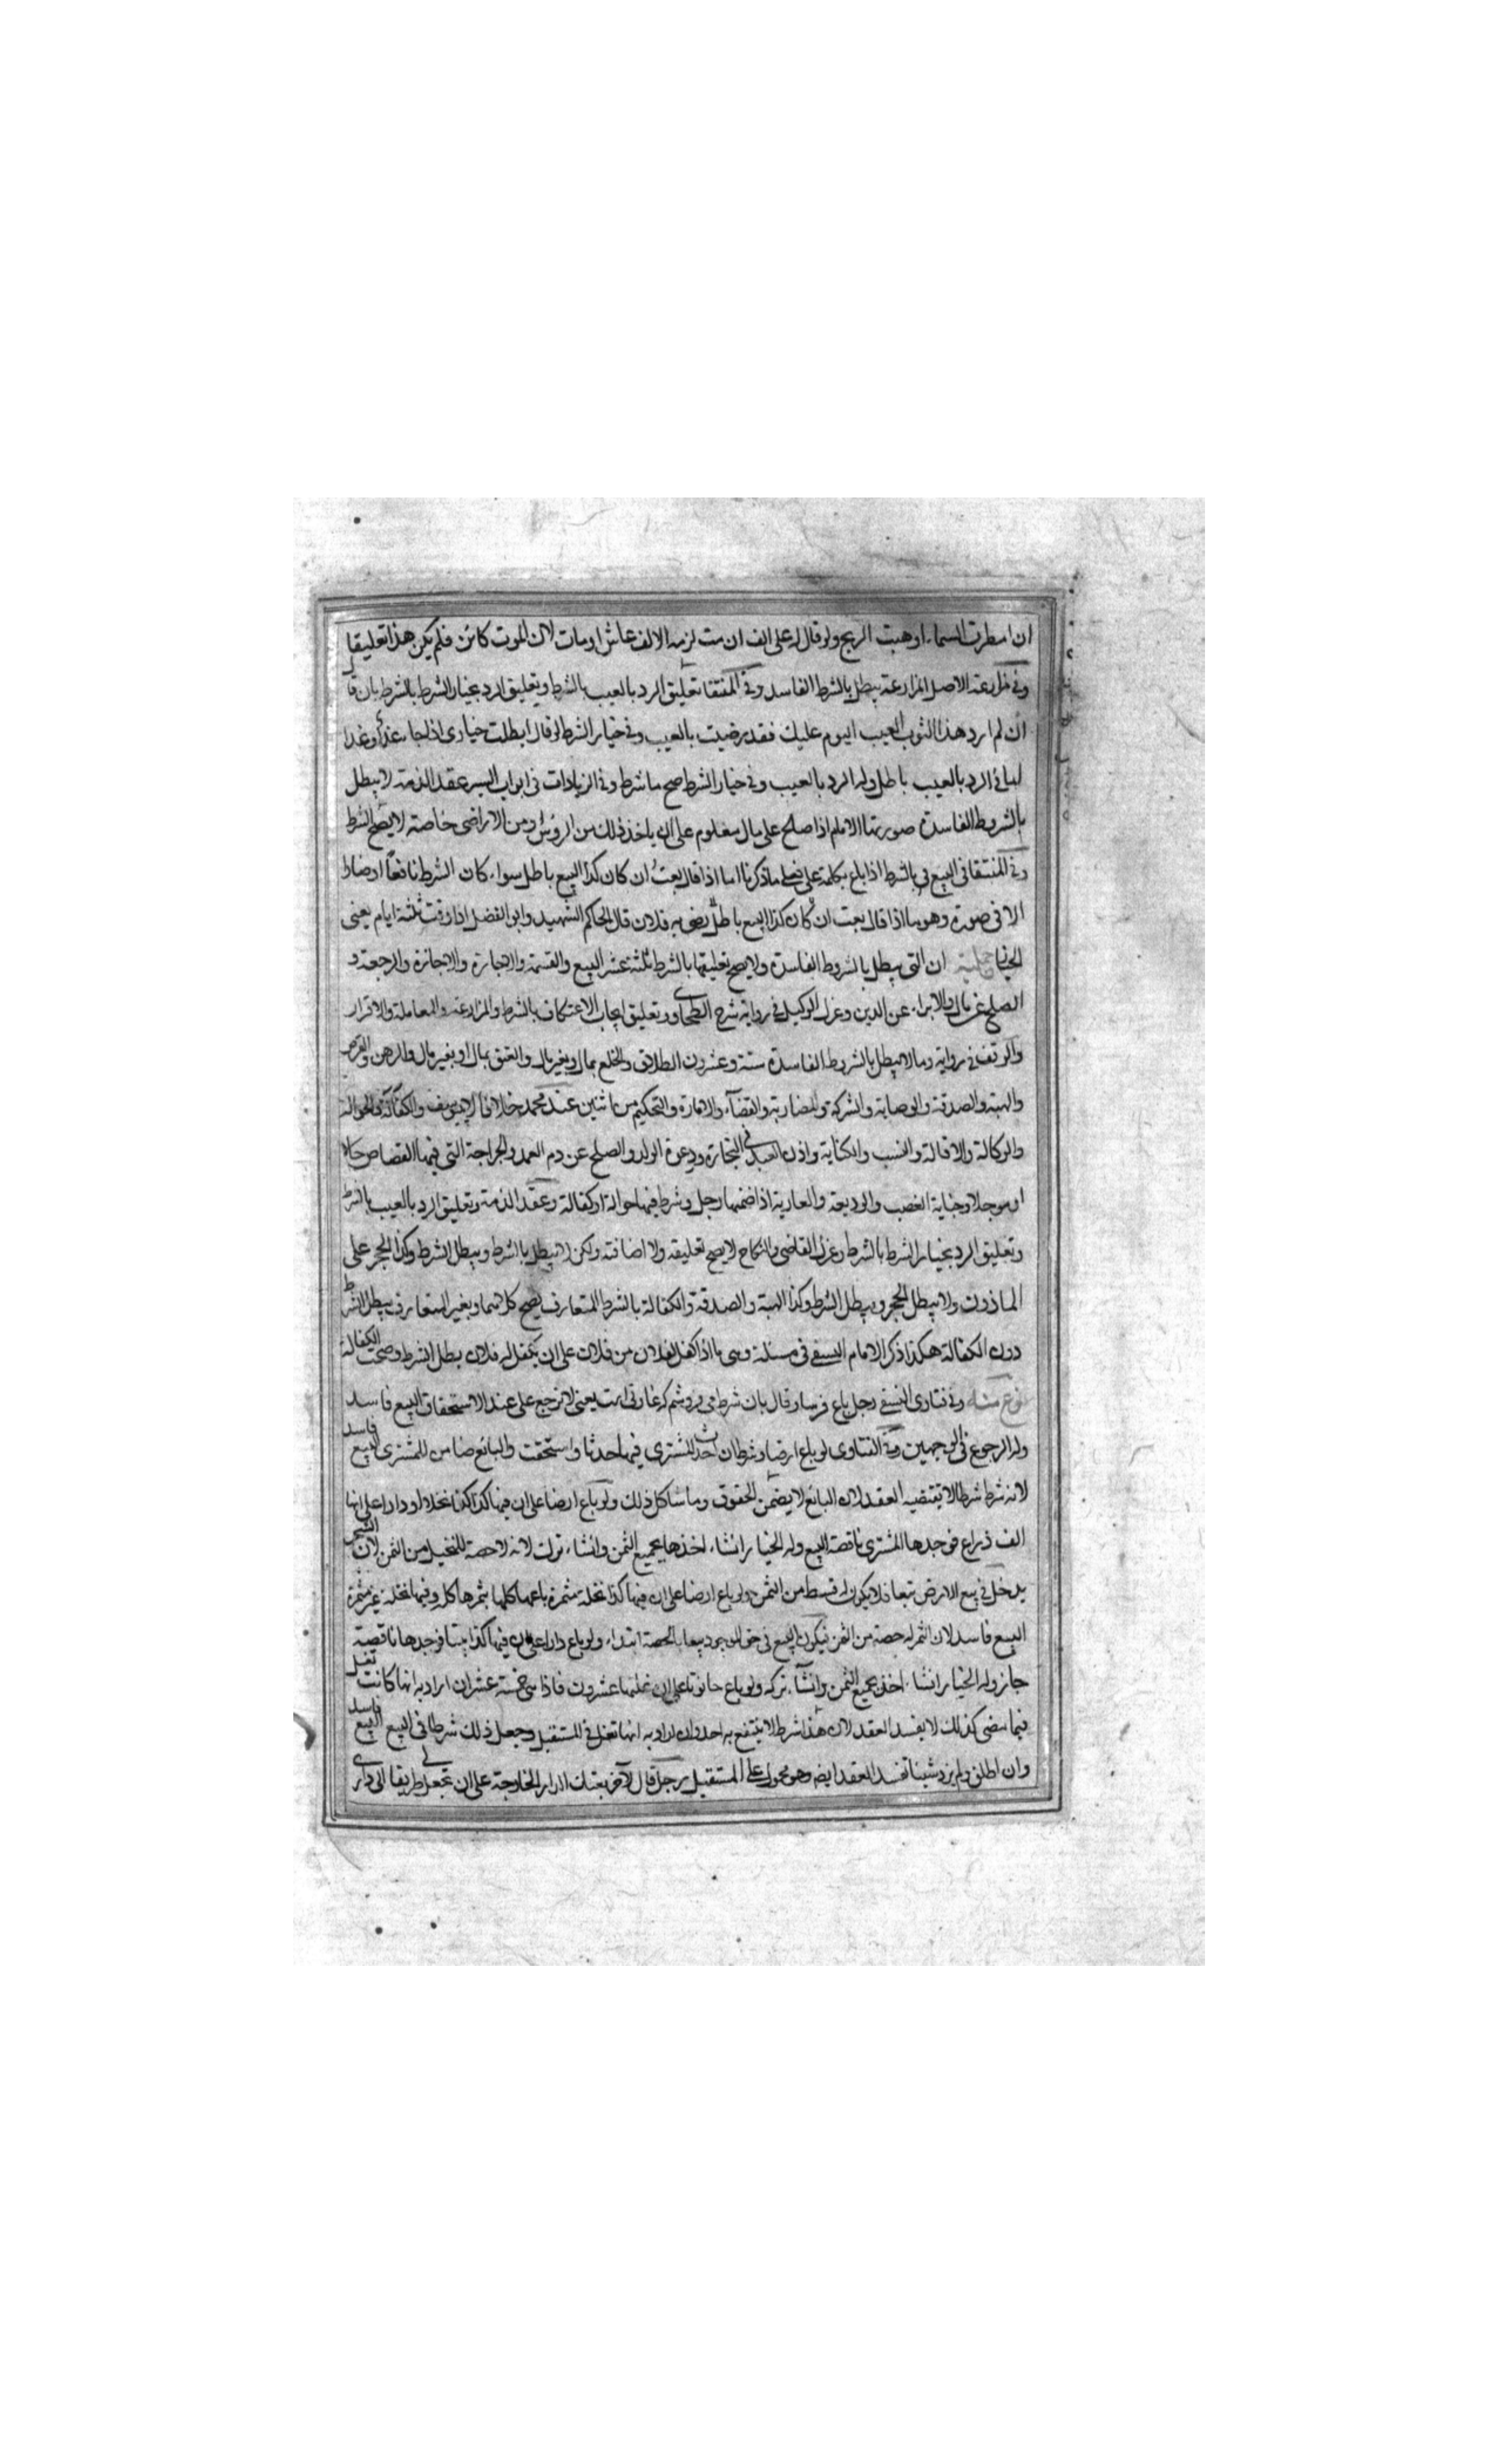 ان امطرت السماء او هبت الريح ولو قال له على الف ان مت لزمه الالف عاش او مات لان الموت كائن فلم يكن هذا تعليقا
وفى مزارعة الاصل المزارعة يبطل بالشرط الفاسد وفى المنتقا تعليق الرد بالعيب بالشرط وتعليق الرد بخيار الشرط بالشرط بان قال
ان لم ارد هذا الثوب العيب اليوم عليك فقد رضيت بالعيب وفى خيار الشرط لو قال ابطلت خيارى اذا جاء غد او غدا
ففى الرد بالعيب باطل وله الرد بالعيب وفى خيار الشرط صح ما شرط وفى الزيادات فى ابواب السير عقد الذمة لا يبطل
بالشروط الفاسدة صورتها الامام اذا صلح على مال معلوم على ان ياخذ ذلك من الروس او من الاراضى خاصة لا يصح الشرط
وفى المنتقا فى البيع بالشرط اذا باع بكلمة على فعلى ما ذكرنا اما اذا قال بعت ان كان كذا البيع باطل سواء كان الشرط نافعا او ضارا
الا فى صورة وهو ما اذا قال بعت ان كان كذا البيع باطل رضى به فلان قال الحاكم الشهيد وابو الفضل اذا وقت ثلثة ايام يعنى
الخيار جملته ان التى يبطل بالشروط الفاسدة ولا يصح تعليقها بالشرط ثلثة عشر البيع والقسمة والاجارة والاجازة والرجعة و
الصلح عن مال والابراء عن الدين وعزل الوكيل فى رواية شرح الطحاوى وتعليق ايجاب الاعتكاف بالشرط والمزارعة والمعاملة والاقرار
والوقف فى رواية وما لا يبطل بالشروط الفاسدة ستة وعشرون الطلاق والخلع بمال وبغير مال والعتق بمال او بغير مال والرهن والقرض
والهبة والصدقة والوصاية والشركة والمضاربة والقضاء والامارة والتحكيم من اثنين عند محمد خلافا لابى يوسف والكفالة والحوالة
والوكالة والاقالة والنسب والكتابة واذن العبد فى التجارة ودعوة الولد والصلح عن دم العمد والجراحة التى فيها القصاص حالا
او موجلا وجناية الغصب والوديعة والعارية اذا ضمنها رجل وشرط فيها حوالة او كفالة وعقد الذمة وتعليق الرد بالعيب بالشرط
وتعليق الرد بخيار الشرط بالشرط وعزل القاضى والنكاح لا يصح تعليقه ولا اضافته ولكن لا يبطل بالشرط ويبطل الشرط وكذا الحجر على
الماذون ولا يبطل الحجر ويبطل الشرط وكذا الهبة والصدقة والكفالة بالشرط المتعارف يصح كلاهما وبغير المتعارف يبطل الشرط
دون الكفالة هكذا ذكر الامام النسفى فى مسئلة وهى ما اذا كفل لفلان من فلان على ان يكفل له فلان بطل الشرط وصحت الكفالة
نوع منه وفى فتاوى النسفى رجل باع فرسا وقال بان شرط مى فروشم كه غارتى است يعنى لا ترجع على عند الاستحقاق البيع فاسد
وله الرجوع فى الوجهين وفى الفتاوى لو باع ارضا وشرط ان احدث المشترى فيها حدثا واستحقت والبايع ضامن للمشترى البيع فاسد
لانه شرط شرطا لا يقتضيه العقد لان البائع لا يضمن الحقوق وما شاكل ذلك ولو باع ارضا على ان فيها كذا كذا نخلا او دارا على انها
الف ذراع فوجدها المشترى ناقصة البيع وله الخيار ان شاء اخذها بجميع الثمن وان شاء ترك لانه لا حصة للنخيل من الثمن لان الشجر
يدخل فى بيع الارض تبعا فلا يكون له قسط من الثمن ولو باع ارضا على ان فيها كذا نخلة مثمرة باعها كلها بثمرها كله وفيها نخلة غير مثمرة
البيع فاسد لان الثمر له حصة من الثمن فيكون البيع فى حق الموجود بيعا بالحصة ابتداء ولو باع دارا على ان فيها كذا بيتا فوجدها ناقصة
جاز وله الخيار ان شاء اخذ بجميع الثمن وان شاء تركه ولو باع حانوتا على ان غلتها عشرون فاذا هى خمسة عشر ان اراد به انها كانت تغل
فيما مضى كذلك لا يفسد العقد لان هذا شرط لا ينتفع به احد وان اراد به انها تغل فى المستقبل وجعل ذلك شرطا فى البيع البيع فاسد
وان اطلق ولم يزد شيئا فسد العقد ايضا وهو محمول على المستقبل رجل قال لآخر بعتك الدار الخارجة على ان تجعل لى طريقا الى دارى